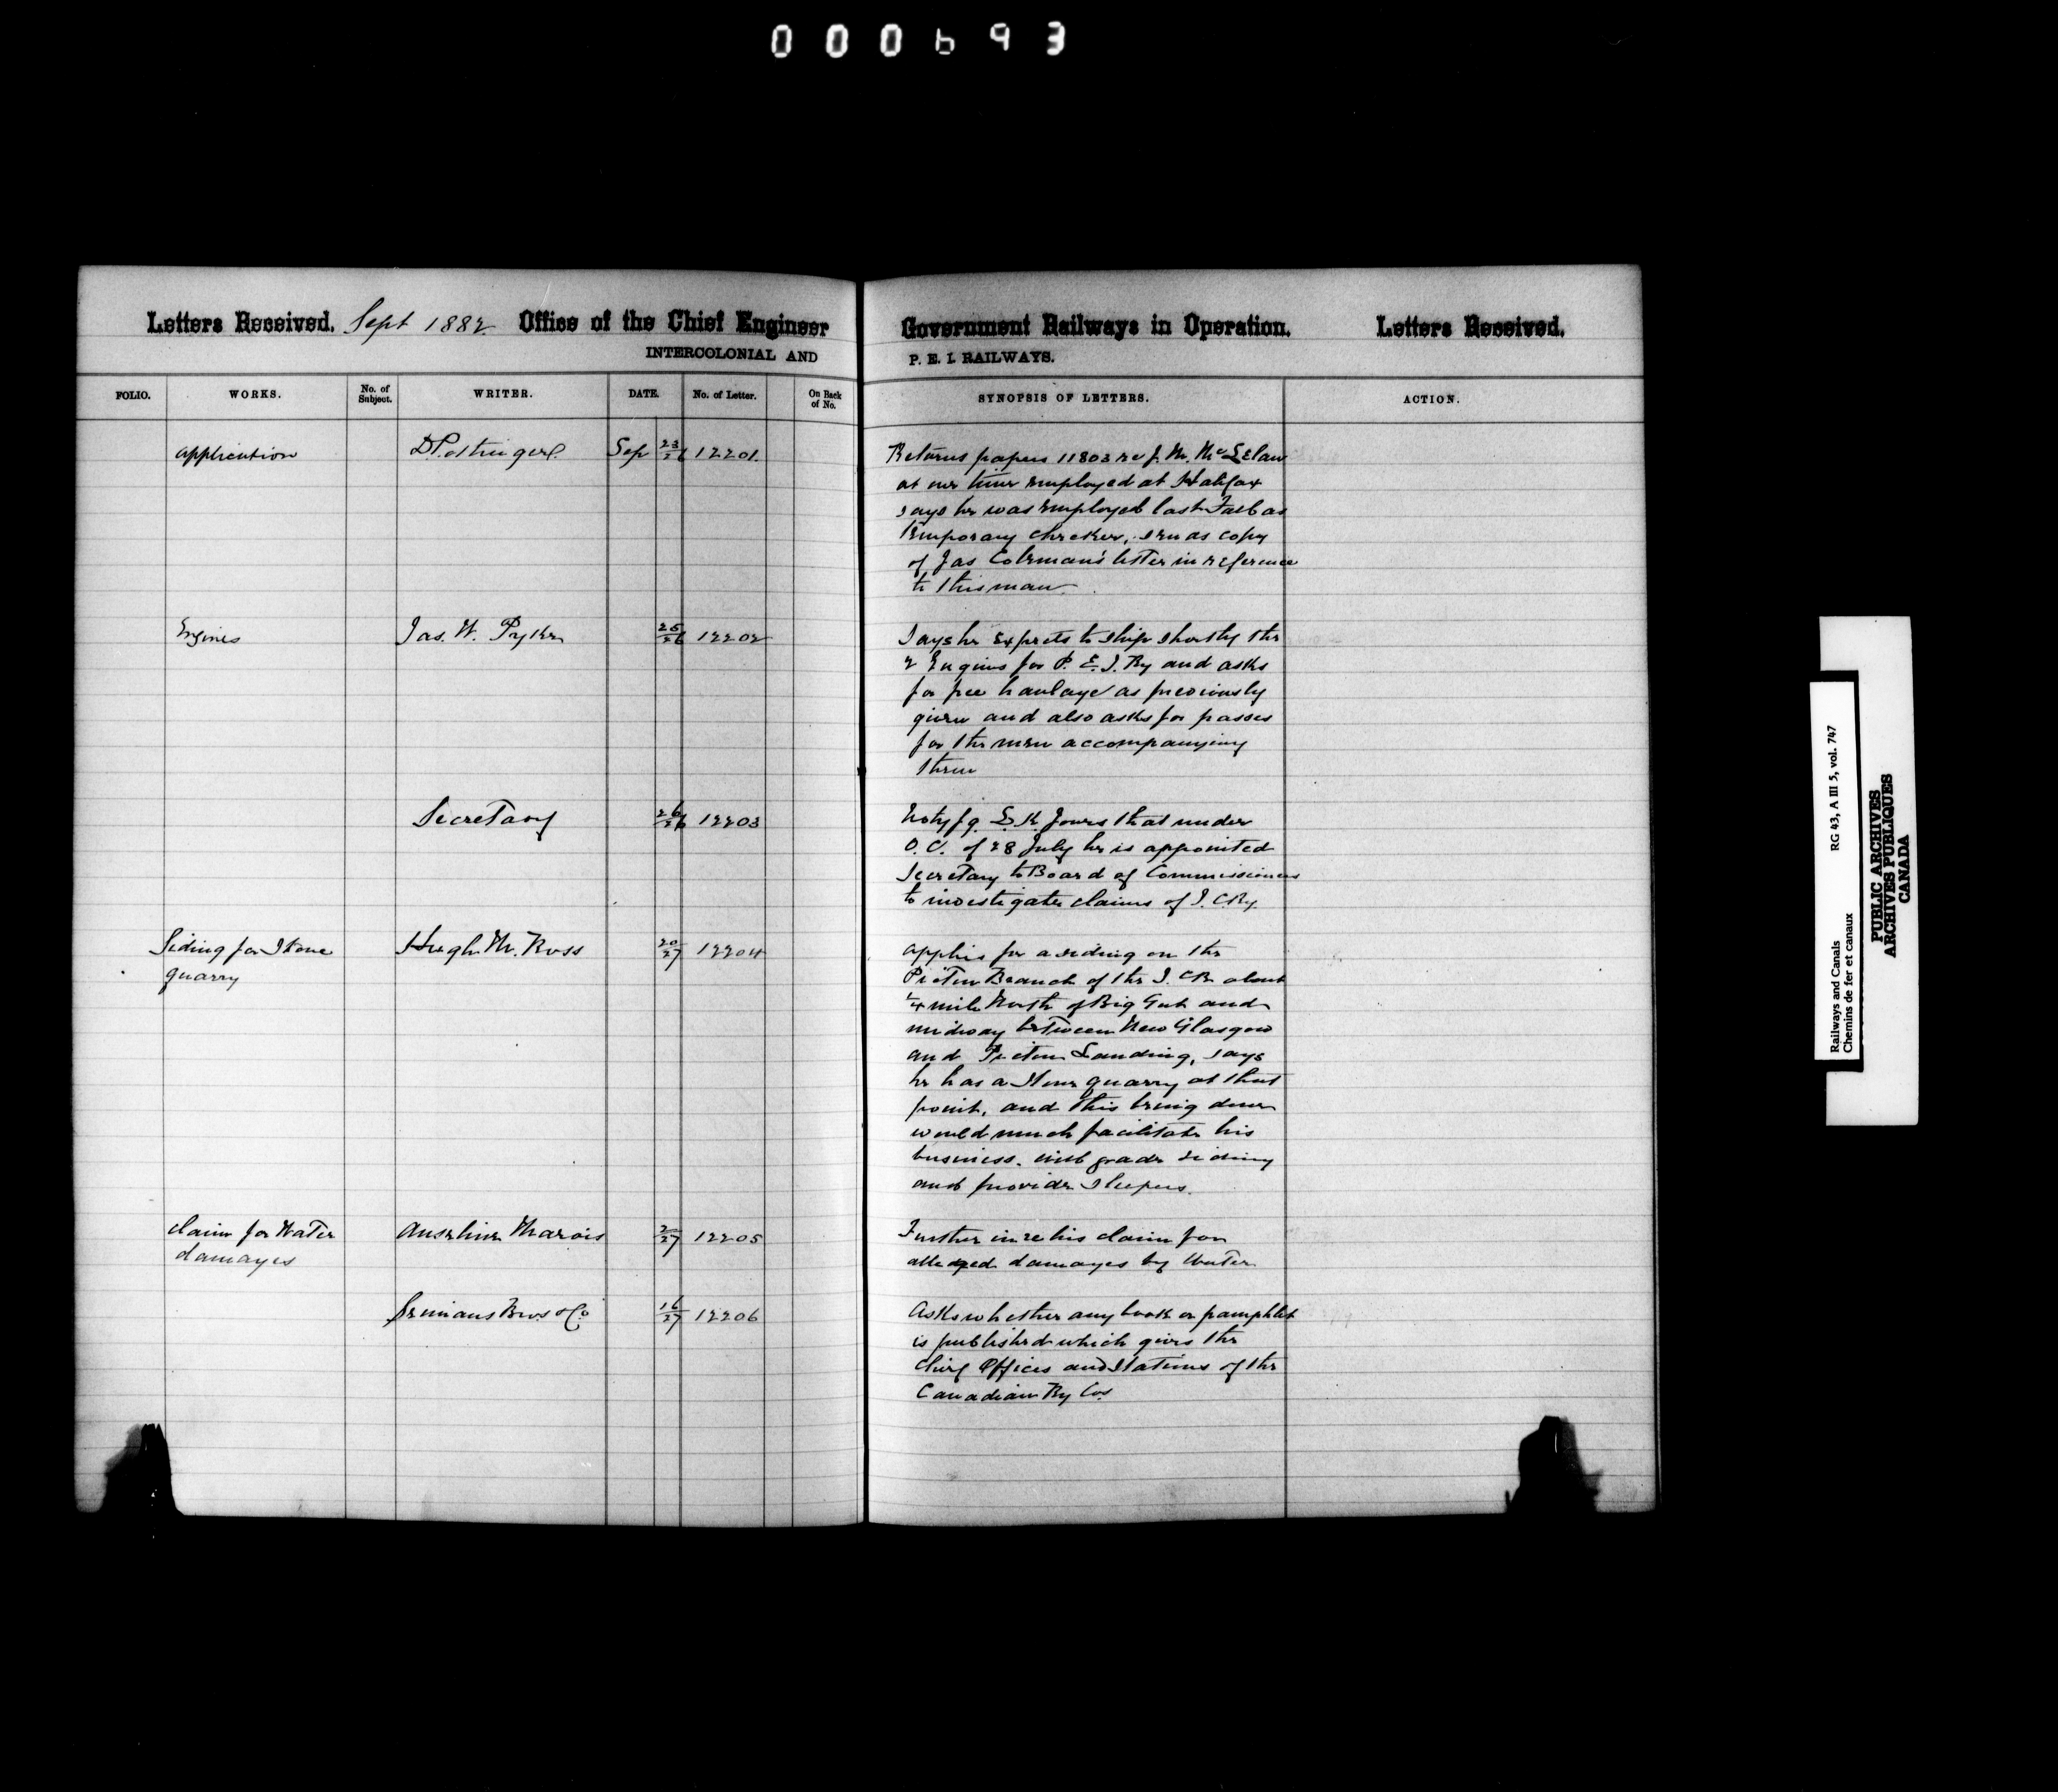 000693
Letters Received. Sept 1882 Office of the Chief Engineer Government Railways in Operation. Letters Received.
INTERCOLONIAL AND P. E. I. RAILWAYS.
FOLIO. WORKS. No. of Subject. WRITER. DATE. No. of Letter. On Back of No. SYNOPSIS OF LETTERS. ACTION.
application D Pottinger Sep 23/26 12201.
Returns papers 11803 re J. M. McLelan
at one time employed at Halifax
says he was employed last Fall as
temporary checker, sends copy
of Jas Coleman's letter in reference
to this man
Engines Jas. W. Pyke 25/26 12202
Says he expects to ship shortly the
2 Engines for P. E. I. Ry and asks
for free haulage as previously
given and also asks for passes
for the men accompanying
them
Secretary 26/26 12203
Notifg L. K. Jones that under
O. C. of 28 July he is appointed
Secretary to Board of Commissioners
to investigate claims of I. C. Ry.
Siding for Stone Hugh M. Ross 20/27 12204
quarry
applies for a siding on the
Pictou Branch of the I. C R about
1/4 mile North of Big Gut and
midway between New Glasgow
and Pictou Landing, says
he has a stone quarry at that
point, and this being done
would much facilitate his
business. will grade siding
and provide sleepers.
Claim for Water Anselme Marois 2/27 12205
damages
Further in re his claim for
alleged damages by Water
Bros & Co. 16/27 12206
Asks whether any book or pamphlet
is published which gives the
Chief Offices and Stations of the
Canadian Ry Cos
Railways and Canals RG 43, A III 5, vol. 747
Chemins de fer et canaux
PUBLIC ARCHIVES
ARCHIVES PUBLIQUES
CANADA